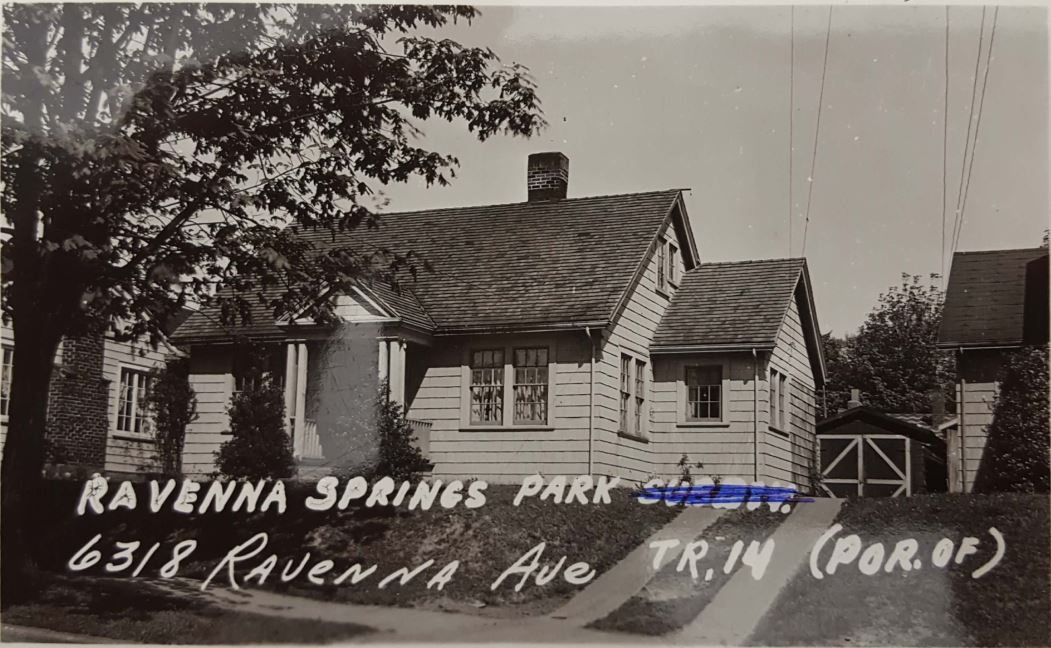 RAVENNA SPRINGS PARK SUBDN.
6318 RAVENNA AVE TR. 14 (POR. OF)